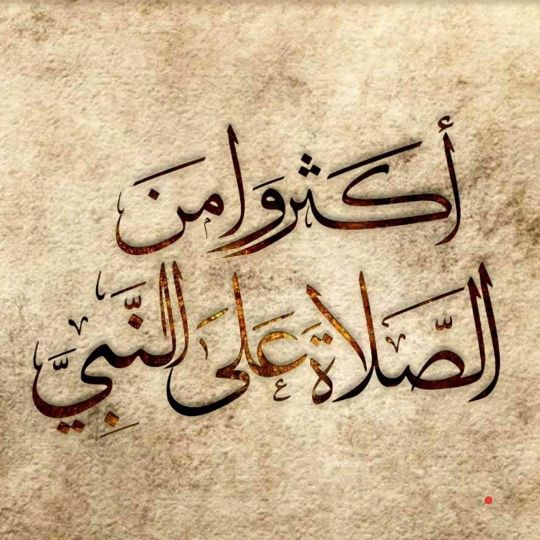 أكثروا من
الصَّلَاة عَلَى النَّبِيِّ